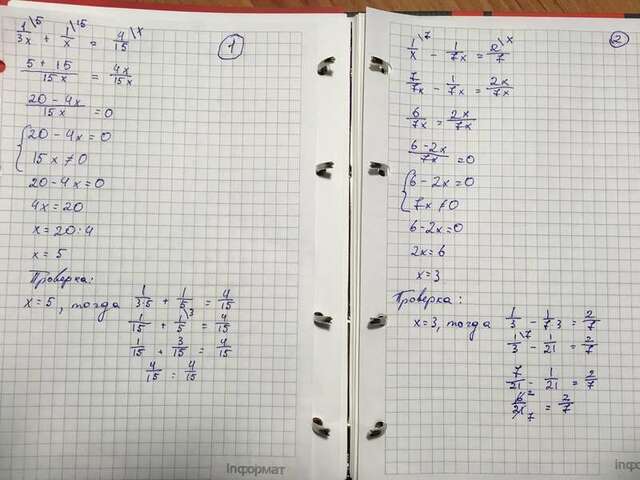 1
1/3x \5 + 1/x \15 = 4/15 \x
5+15/15x = 4x/15x
20-4x/15x = 0
{20-4x=0
15x≠0
20-4x=0
4x=20
x=20:4
x=5
Проверка:
x=5, тогда 1/3·5 + 1/5 = 4/15
1/15 + 1/5 \3 = 4/15
1/15 + 3/15 = 4/15
4/15 = 4/15
інформат
2
1/x \7 - 1/7x = 2/7 \x
7/7x - 1/7x = 2x/7x
6/7x = 2x/7x
6-2x/7x = 0
{6-2x=0
7x≠0
6-2x=0
2x=6
x=3
Проверка:
x=3, тогда 1/3 - 1/7·3 = 2/7
1/3 \7 - 1/21 = 2/7
7/21 - 1/21 = 2/7
6/21 2/7 = 2/7
інформат